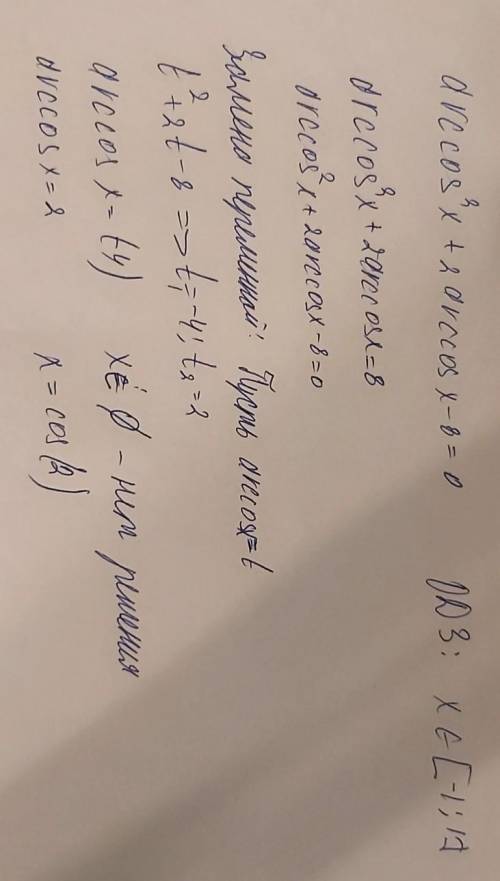 arccos²x + 2 arccos x - 8 = 0 ОДЗ: x ∈ [-1; 1]
arccos²x + 2arccosx = 8
arccos²x + 2arccosx - 8 = 0
Замена переменной: Пусть arccosx = t
t² + 2t - 8 => t₁ = -4; t₂ = 2
arccos x = (-4) x ∈ ∅ - нет решения
arccos x = 2 x = cos(2)